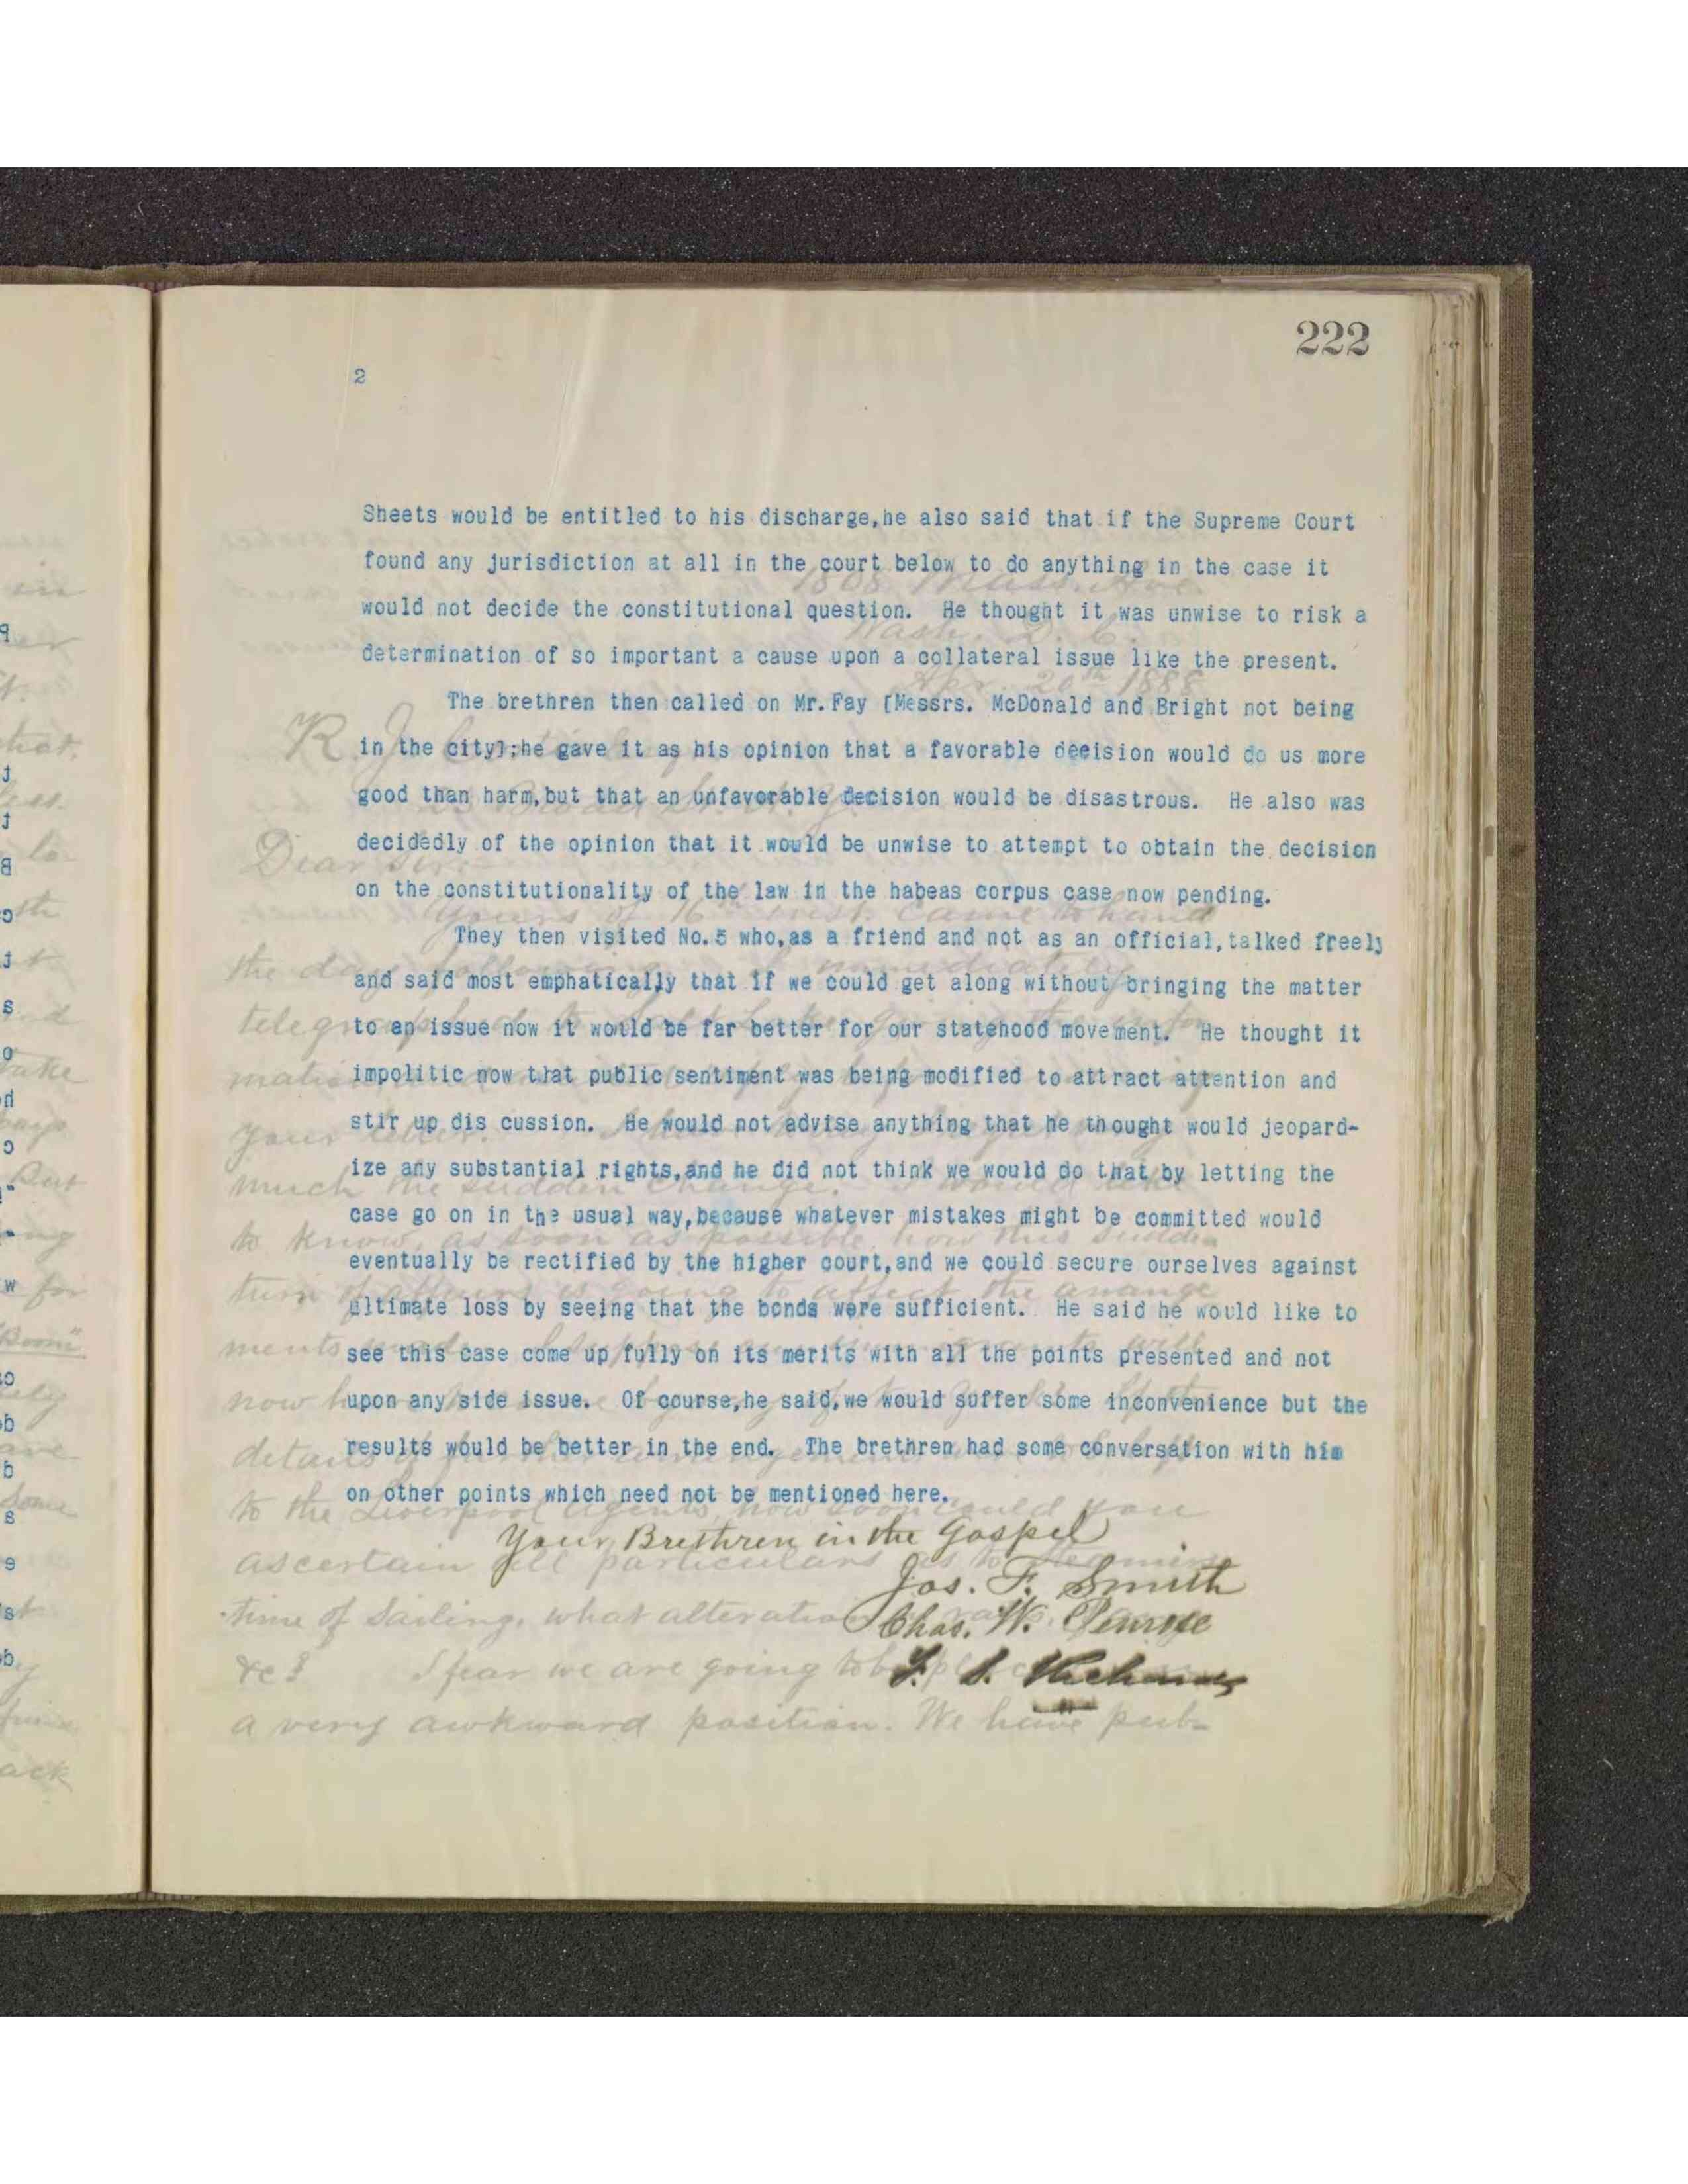 222
2
Sheets would be entitled to his discharge,he also said that if the Supreme Court
found any jurisdiction at all in the court below to do anything in the case it
would not decide the constitutional question. He thought it was unwise to risk a
determination of so important a cause upon a collateral issue like the present.
The brethren then called on Mr. Fay [Messrs. McDonald and Bright not being
in the city];he gave it as his opinion that a favorable decision would do us more
good than harm,but that an unfavorable decision would be disastrous. He also was
decidedly of the opinion that it would be unwise to attempt to obtain the decision
on the constitutionality of the law in the habeas corpus case now pending.
They then visited No. 5 who,as a friend and not as an official,talked freely
and said most emphatically that if we could get along without bringing the matter
to an issue now it would be far better for our statehood movement. He thought it
impolitic now that public sentiment was being modified to attract attention and
stir up dis cussion. He would not advise anything that he thought would jeopard-
ize any substantial rights,and he did not think we would do that by letting the
case go on in the usual way,because whatever mistakes might be committed would
eventually be rectified by the higher court,and we could secure ourselves against
ultimate loss by seeing that the bonds were sufficient. He said he would like to
see this case come up fully on its merits with all the points presented and not
upon any side issue. Of course,he said,we would suffer some inconvenience but the
results would be better in the end. The brethren had some conversation with him
on other points which need not be mentioned here.
Your Brethren in the Gospel
Jos. F. Smith
Chas. W. Penrose
F. S. Richards
1808 Mass. Ave.
Wash. D. C.
Apr. 20th 1888
R. J.
Dear Sir:
Yours of 16th inst. came to hand
the day
much the sudden change. I would like
to know, as soon as possible, how this sudden
turn of affairs is going to affect the arrange
ments
now
details
to the Liverpool agents, now soon could you
ascertain all particulars as to
time of sailing, what alteration
&c? I fear we are going to be
a very awkward position. We have pub-